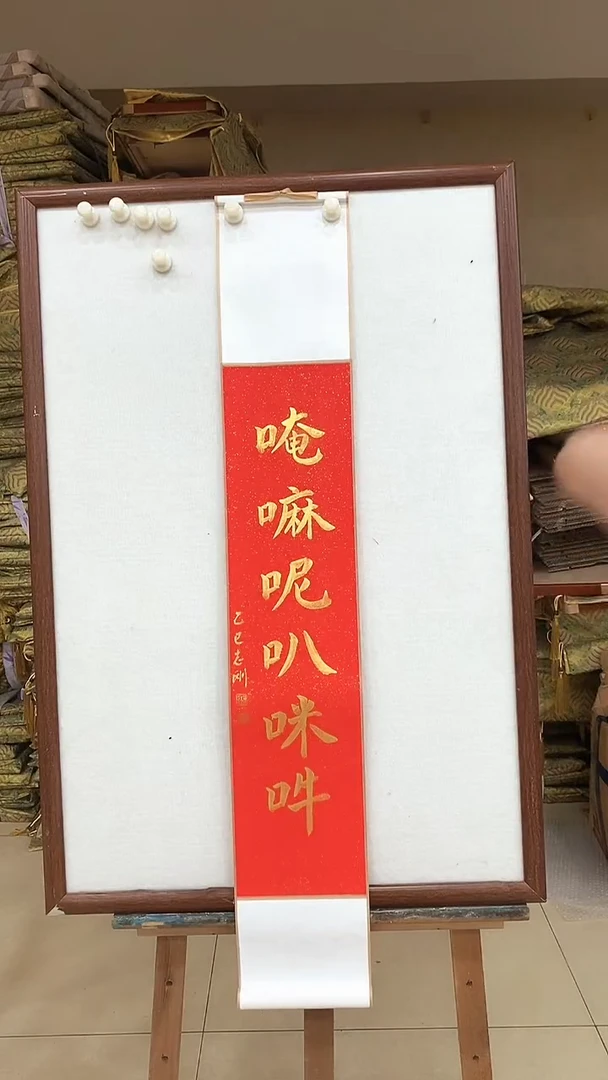 唵嘛呢叭咪吽
乙巳志刚